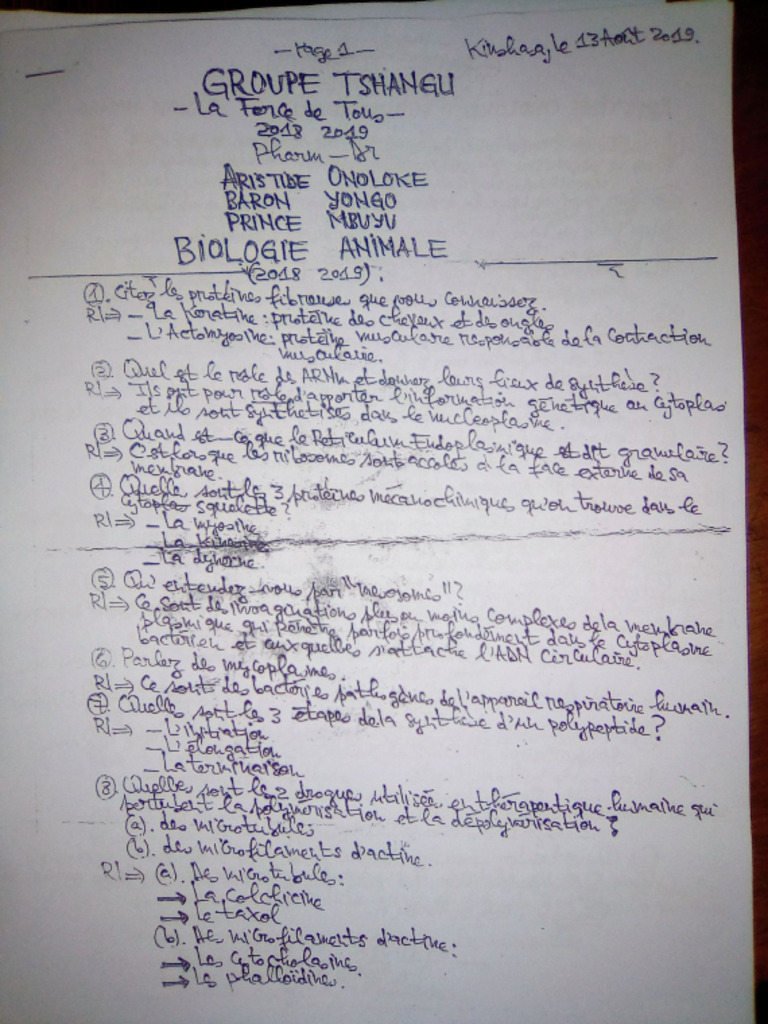 - Page 1 -
Kinshasa, le 13 Août 2019.
GROUPE TSHANGU
- La Force de Tous -
2018 2019
Pharm - Dr
ARISTIDE ONOLOKE
BARON YONGO
PRINCE MBUYU
BIOLOGIE ANIMALE
(2018 2019).
①. Citez les protéines fibreuse que vous connaissez.
R1⇒ - La Keratine : protéine des cheveux et des ongles
- L'Actomyosine : protéine musculaire responsable de la contraction
musculaire.
②. Quel est le role des ARNm et donner leurs lieux de synthèse ?
R1⇒ Ils ont pour role d'apporter l'information génétique au cytoplas
et ils sont synthetisés dans le nucleoplasme.
③. Quand est-ce que le Reticulum Endoplasmique est dit granulaire ?
R1⇒ C'est lorsque les ribosomes sont accolés à la face externe de sa
membrane.
④. Quelles sont les 3 protéines mécanochimiques qu'on trouve dans le
cytoplas squelette ?
R1⇒ - La myosine
- La Kinesine
- La dyneine.
⑤. Qu'entendez-vous par "mesosomes" ?
R1⇒ Ce sont des invaginations plus ou moins complexes de la membrane
plasmique qui pénètre parfois profondement dans le cytoplasme
bacterien et auxquelles s'attache l'ADN circulaire.
⑥. Parlez des mycoplasmes.
R1⇒ Ce sont des bactéries pathogènes de l'appareil respiratoire humain.
⑦. Quelles sont les 3 étapes de la synthèse d'un polypeptide ?
R1⇒ - L'initiation
- L'élongation
- La terminaison
⑧. Quelles sont les 2 drogues utilisées en thérapeutique humaine qui
perturbent la polymérisation et la dépolymérisation ?
(a). des microtubules
(b). des microfilaments d'actine.
R1⇒ (a). Des microtubules :
→ La Colchicine
→ Le taxol
(b). Des microfilaments d'actine :
→ Les cytocholasines
→ Les phalloïdines.